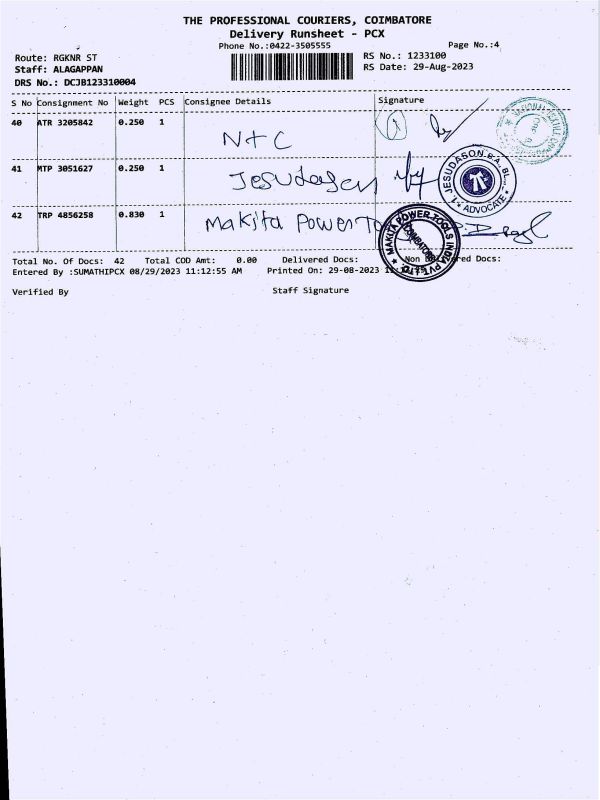 THE PROFESSIONAL COURIERS, COIMBATORE
Delivery Runsheet - PCX
Phone No.:0422-3505555
Page No.:4
Route: RGKNR ST
RS No.: 1233100
Staff: ALAGAPPAN
RS Date: 29-Aug-2023
DRS No.: DCJB123310004
S No Consignment No Weight PCS Consignee Details Signature
40 ATR 3205842 0.250 1
N+C
41 MTP 3051627 0.250 1
Jesudasen
JESUDASON B.A. BL.,
ADVOCATE
42 TRP 4856258 0.830 1
Makita Power
MAKITA POWER TOOLS INDIA PVT. LTD.
COIMBATORE
Total No. Of Docs: 42 Total COD Amt: 0.00 Delivered Docs: Non Delivered Docs:
Entered By :SUMATHIPCX 08/29/2023 11:12:55 AM Printed On: 29-08-2023
Verified By Staff Signature